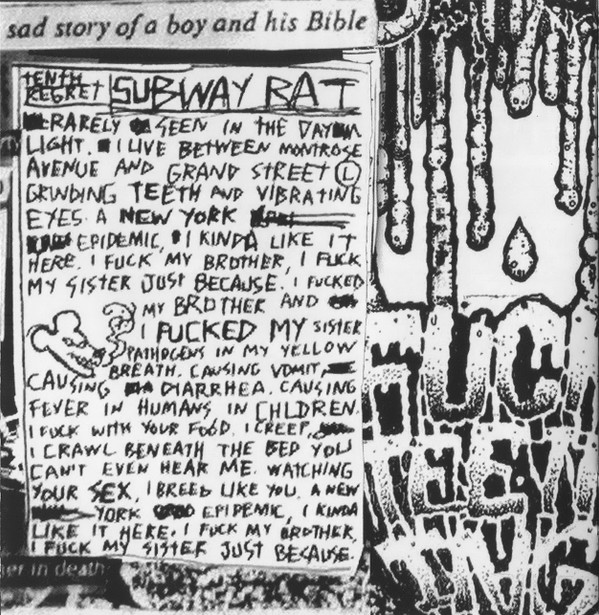 sad story of a boy and his Bible
TENTH
REGRET
SUBWAY RAT
RARELY SEEN IN THE DAY
LIGHT. I LIVE BETWEEN MONTROSE
AVENUE AND GRAND STREET (L)
GRINDING TEETH AND VIBRATING
EYES. A NEW YORK
EPIDEMIC, I KINDA LIKE IT
HERE. I FUCK MY BROTHER, I FUCK
MY SISTER JUST BECAUSE. I FUCKED
MY BROTHER AND
I FUCKED MY SISTER
PATHOGENS IN MY YELLOW
BREATH. CAUSING VOMIT,
CAUSING DIARRHEA. CAUSING
FEVER IN HUMANS, IN CHLDREN.
I FUCK WITH YOUR FOOD. I CREEP,
I CRAWL BENEATH THE BED YOU
CAN'T EVEN HEAR ME. WATCHING
YOUR SEX, I BREED LIKE YOU. A NEW
YORK EPIDEMIC, I KINDA
LIKE IT HERE. I FUCK MY BROTHER,
I FUCK MY SISTER JUST BECAUSE.
er in death